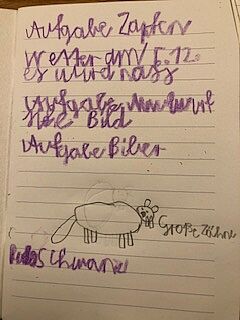 Aufgabe Zapfen
Wetter dm 5.12.
es wird nass
Aufgabe Maulwurf
Bild
Aufgabe Biber
Große Zähne
Schwanz